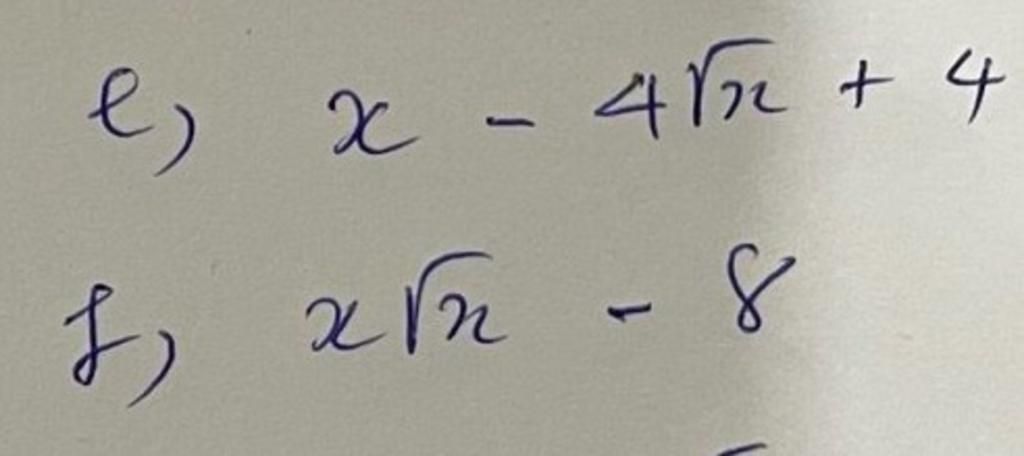 e, x - 4√x + 4
f, x√x - 8